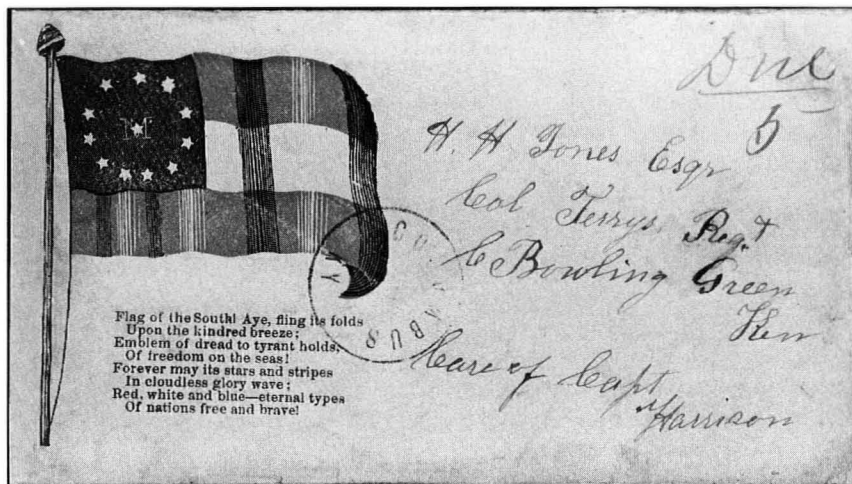 Due
5
H. H Jones Esqr
Col Terrys Regt
Bowling Green
Ken
Care of Capt
Harrison
COLUMBUS
KY
Flag of the South! Aye, fling its folds
Upon the kindred breeze;
Emblem of dread to tyrant holds,
Of freedom on the seas!
Forever may its stars and stripes
In cloudless glory wave;
Red, white and blue—eternal types
Of nations free and brave!